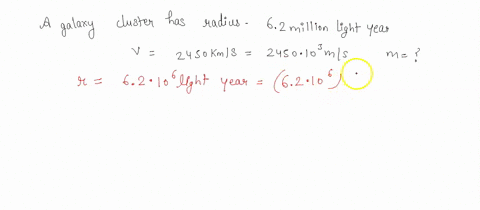 A galaxy cluster has radius - 6.2 million light year
V = 2450 Km/s = 2450·10³ m/s m = ?
r = 6.2·10⁶ light year = (6.2·10⁶) ·